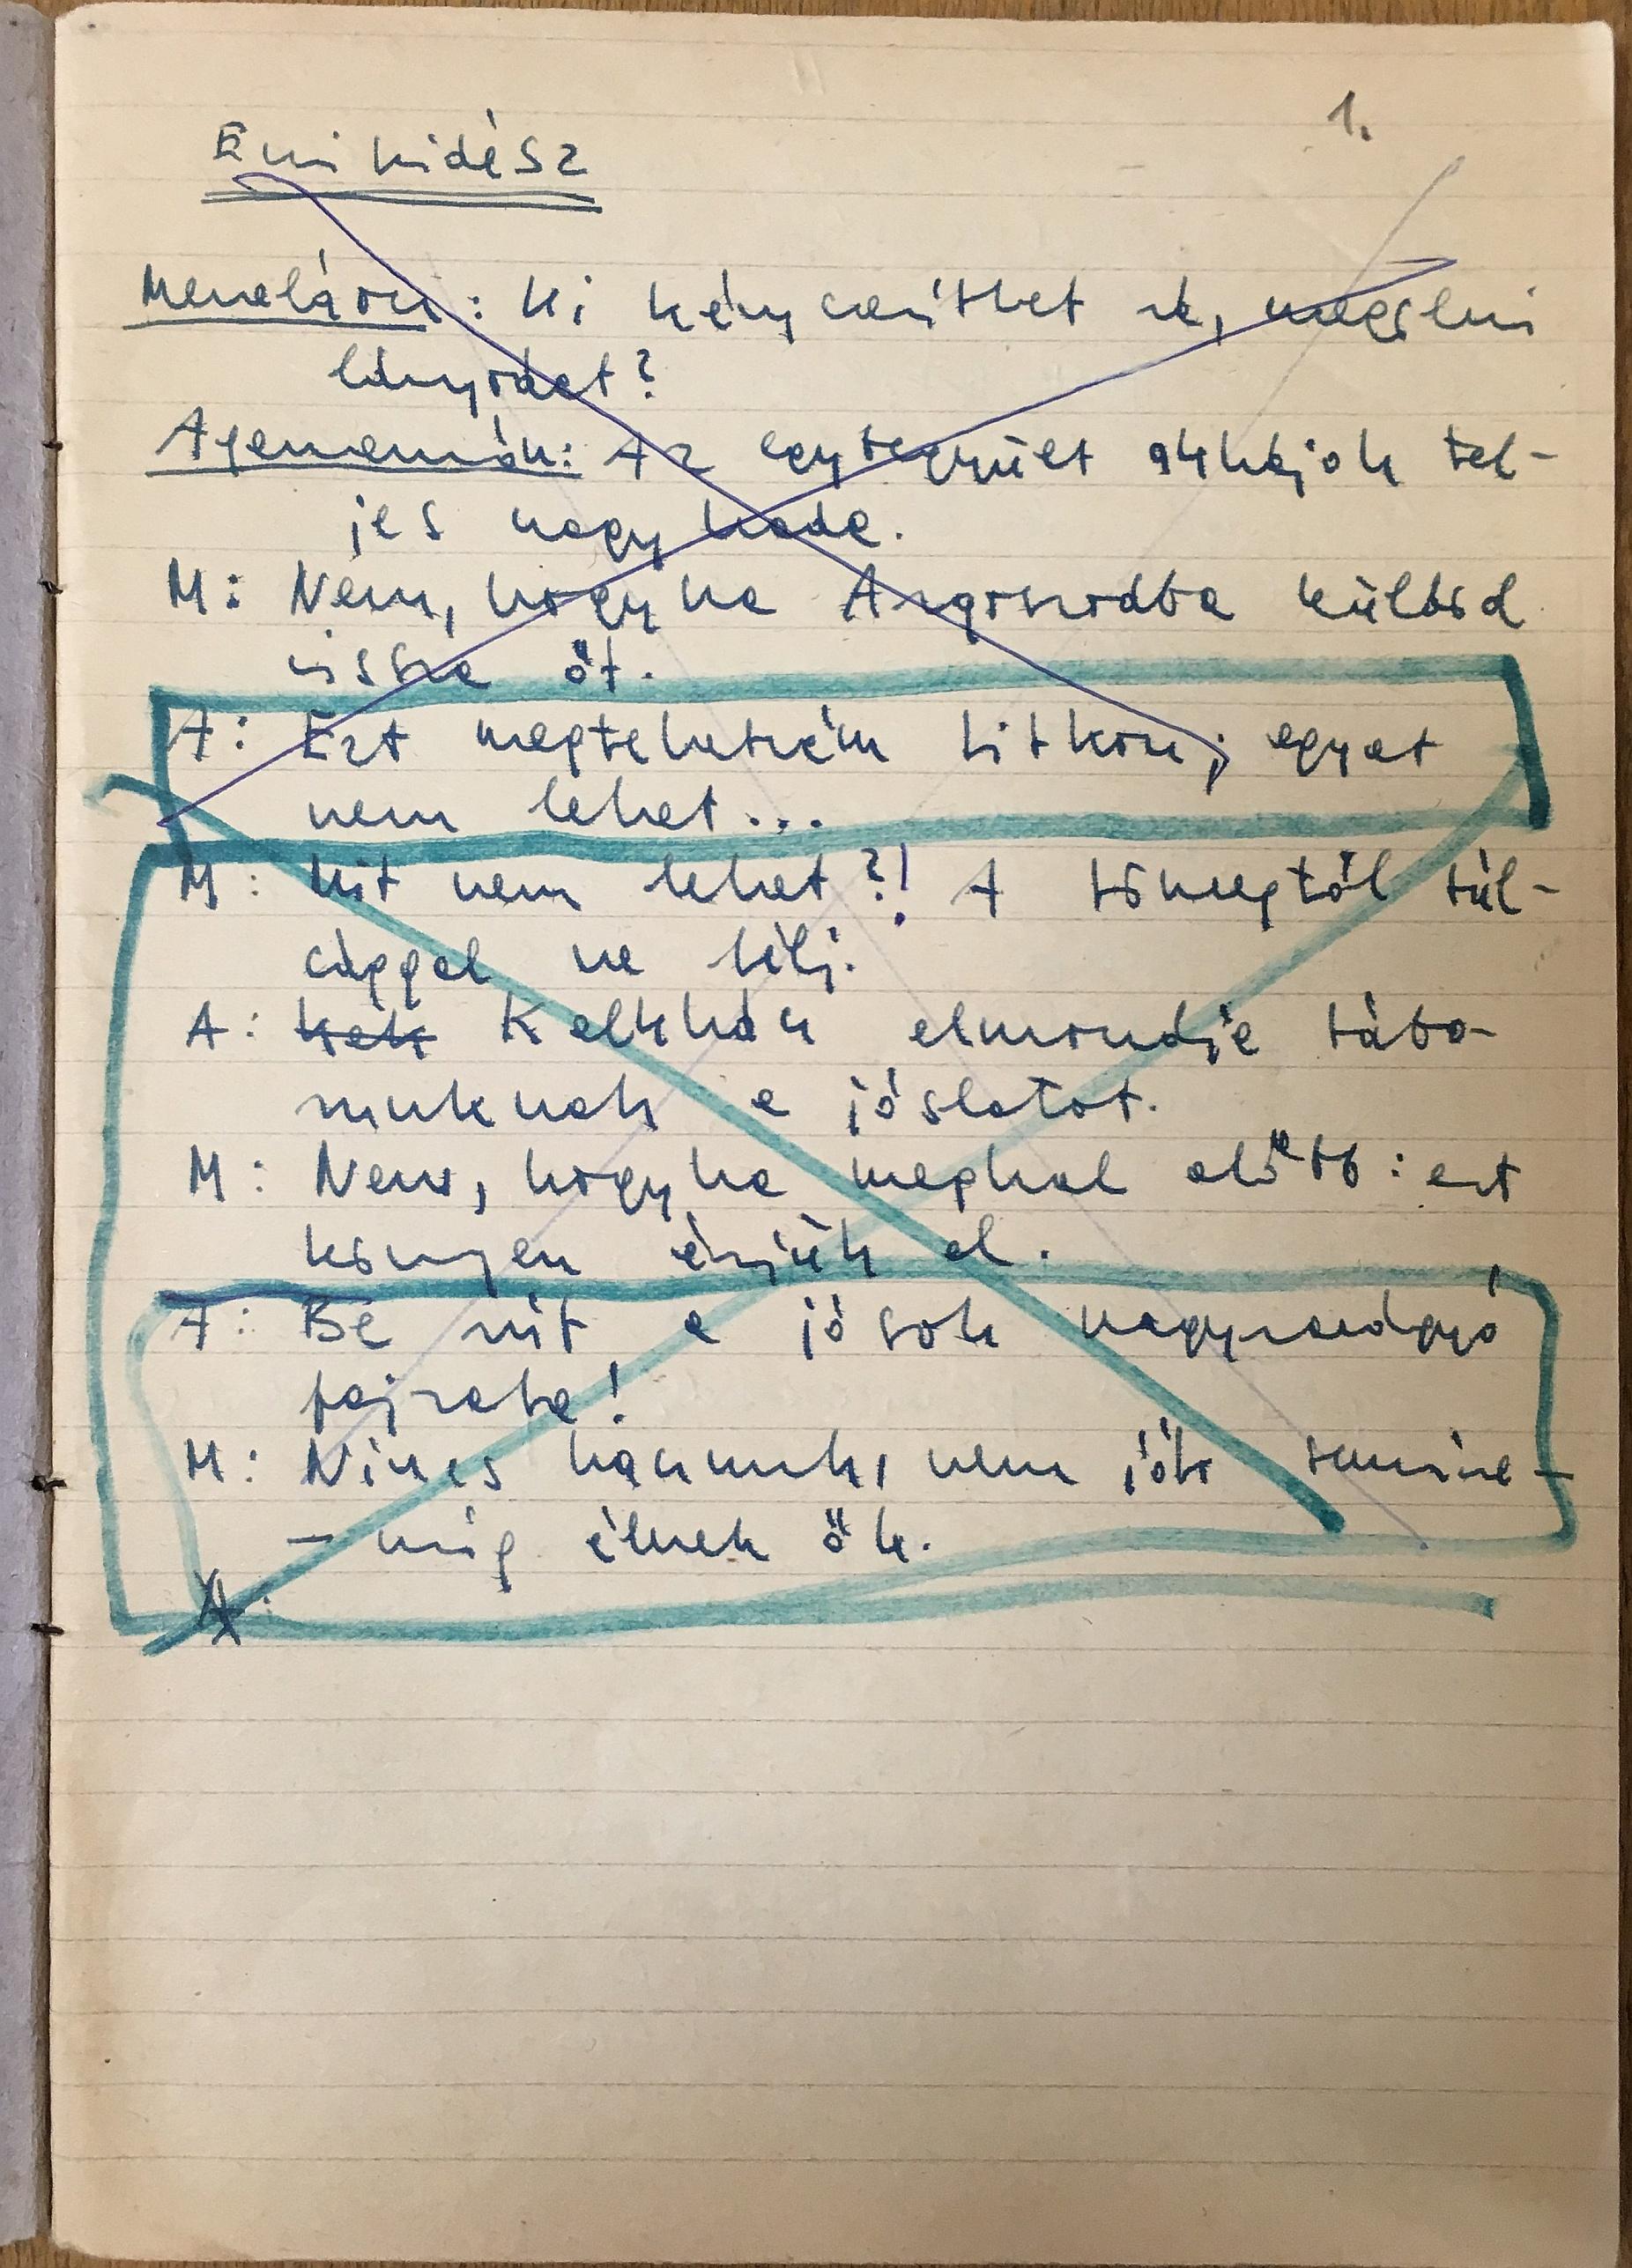 1.
Euripidész
Menelaosz: Ki kényszeríthet rá, megölni
lányodat?
Agamemnón: Az egybegyűlt akhájok tel-
jes nagy hada.
M: Nem, hogyha Argoszodba küldöd
vissza őt.
A: Ezt megtehetném titkon; egyet
nem lehet...
M: Mit nem lehet?! A tömegtől túl-
ságggal ne félj.
A: Kalkhász elmondja tábo-
runknak a jóslatot.
M: Nem, hogyha meghal előbb: ezt
könnyen érjük el.
A: Be rút a jósok nagyravágyó
fajzata!
M: Nincs hasznuk, nem jók semmire
– míg élnek ők.
A: